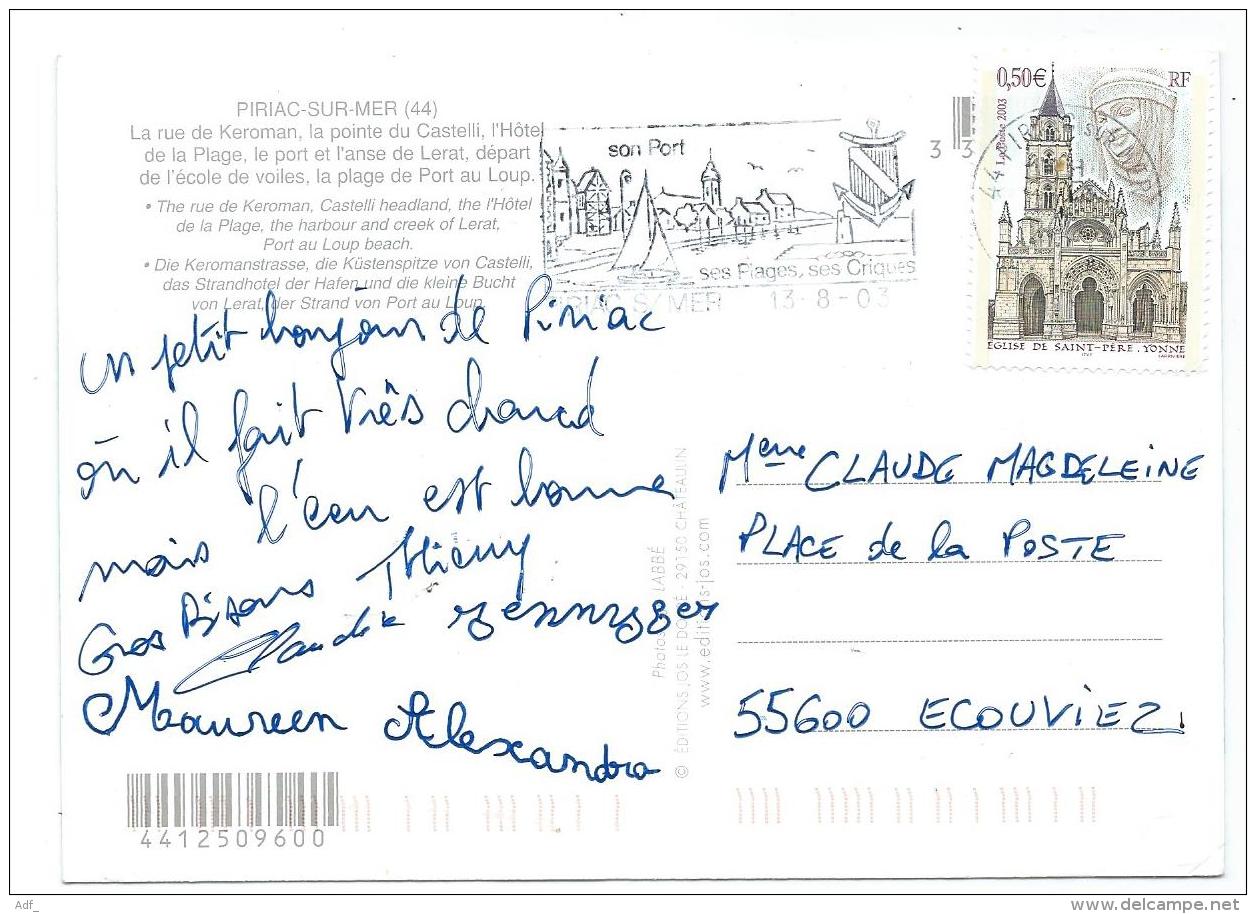 PIRIAC-SUR-MER (44)
La rue de Keroman, la pointe du Castelli, l'Hôtel
de la Plage, le port et l'anse de Lerat, départ
de l'école de voiles, la plage de Port au Loup.
• The rue de Keroman, Castelli headland, the l'Hôtel
de la Plage, the harbour and creek of Lerat,
Port au Loup beach.
• Die Keromanstrasse, die Küstenspitze von Castelli,
das Strandhotel der Hafen und die kleine Bucht
von Lerat, der Strand von Port au Loup
son Port
ses Plages, ses Criques
PIRIAC S/ MER 13-8-03
3 3
0,50€ RF
La Poste 2003
EGLISE DE SAINT-PÈRE. YONNE
un petit bonjour de Piriac
où il fait très chaud
mais l'eau est bonne
Gros Bisous Thierry
Claudie
Maureen Alexandra
Mme CLAUDE MAGDELEINE
PLACE de la POSTE
55600 ECOUVIEZ
Photos LABBÉ
© ÉDITIONS JOS LE DOARÉ - 29150 CHÂTEAULIN
www.editions-jos.com
4412509600
Adf_
delcampe.net